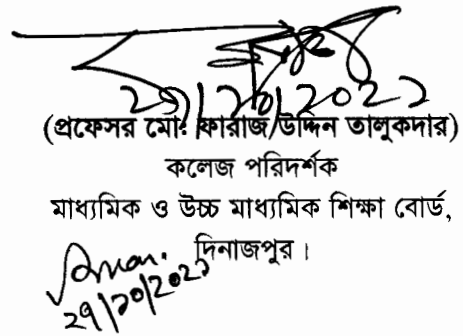 ২৭/১০/২০২১
(প্রফেসর মো: ফারাজ উদ্দিন তালুকদার)
কলেজ পরিদর্শক
মাধ্যমিক ও উচ্চ মাধ্যমিক শিক্ষা বোর্ড,
দিনাজপুর।
২৭/১০/২০২১